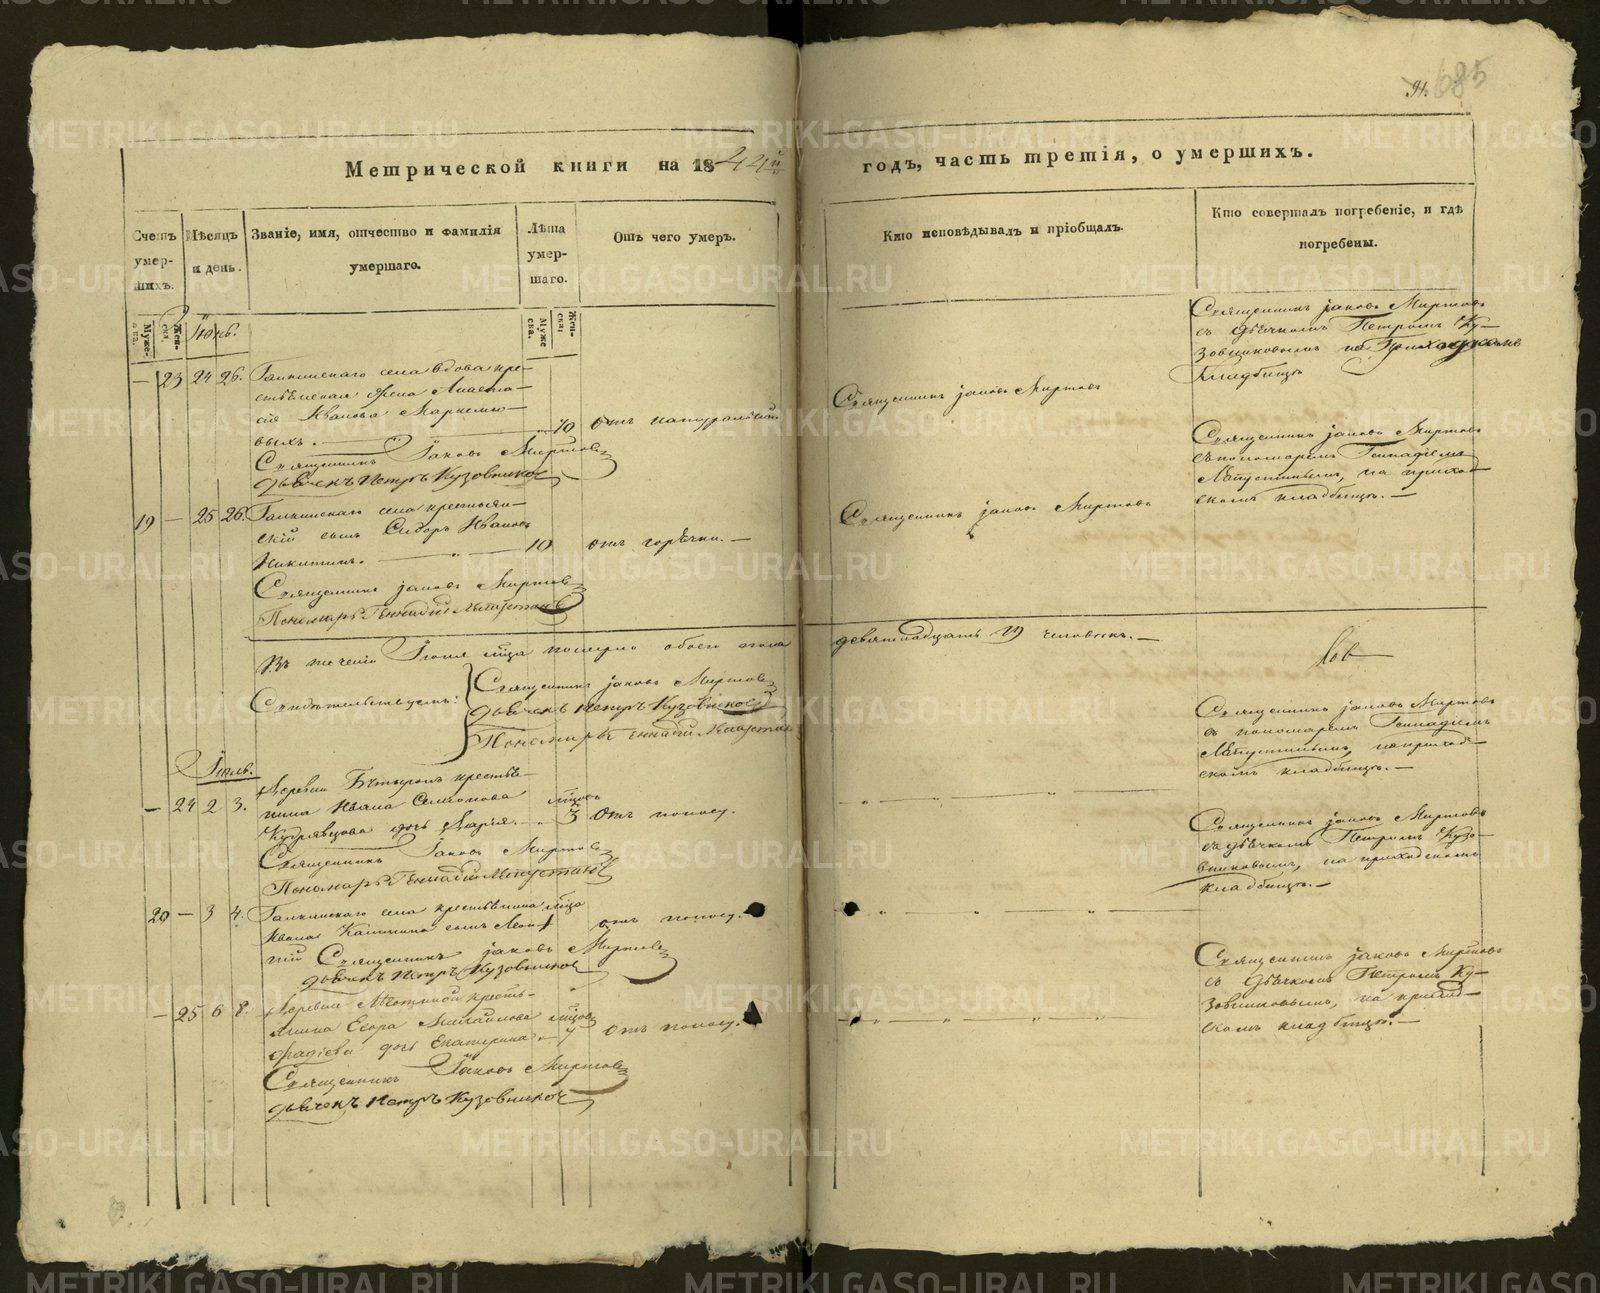 91. 685
Метрической книги на 1842й годъ, часть третія, о умершихъ.
Счетъ умершихъ.
Мѣсяцъ и день.
Званіе, имя, отчество и фамилія умершаго.
Лѣта умершаго.
Отъ чего умеръ.
Кто исповѣдывалъ и пріобщалъ.
Кто совершалъ погребеніе, и гдѣ погребены.
Мужеска.
Женска.
Мужеска.
Женска.
Іюнь.
— 23 24 26.
Галкинскаго села вдова кре-
стьянская жена Анаста-
сія Иванова
выхъ. —
70
отъ натуральной
Священникъ Іаковъ Миртовъ
Дьячекъ Петръ Кузовниковъ
Священникъ Іаковъ Миртовъ
Священникъ Іаковъ Миртовъ
съ дьячкомъ Петромъ Ку-
зовниковымъ на Приходскомъ
Кладбищѣ
19 — 25 26.
Галкинскаго села крестьян-
скій сынъ Сидоръ Ивановъ
Никитинъ. —
10
отъ горячки. —
Священникъ Іаковъ Миртовъ
Пономарь Геннадій
Священникъ Іаковъ Миртовъ
Священникъ Іаковъ Миртовъ
съ пономаремъ Геннадіемъ
на приход-
скомъ кладбищѣ. —
Въ теченіи Іюня м͠ца померло обоего пола
девятнадцать 19 человѣкъ. —
Свидѣтельствуемъ:
Священникъ Іаковъ Миртовъ
Дьячекъ Петръ Кузовниковъ
Пономарь Геннадій
Іюль.
— 24 2 3.
Деревни крестья-
нина Ивана
Кудрявцова дочь Марія. —
м͠цовъ
3
отъ поносу.
Священникъ Іаковъ Миртовъ
Пономарь Геннадій
Священникъ Іаковъ Миртовъ
съ пономаремъ Геннадіемъ
на приход-
скомъ кладбищѣ. —
20 — 3 4.
Галкинскаго села крестьянина
Ивана сынъ
м͠ца
1
отъ поносу.
Священникъ Іаковъ Миртовъ
Дьячекъ Петръ Кузовниковъ
Священникъ Іаковъ Миртовъ
съ дьячкомъ Петромъ Кузо-
вниковымъ, на приходскомъ
кладбищѣ. —
— 25 6 8.
Деревни кресть-
янина Егора Михайлова
Фадѣева дочь Екатерина
м͠цовъ
отъ поносу.
Священникъ Іаковъ Миртовъ
Дьячекъ Петръ Кузовниковъ
Священникъ Іаковъ Миртовъ
съ дьячкомъ Петромъ Ку-
зовниковымъ, на приход-
скомъ кладбищѣ. —
METRIKI.GASO-URAL.RU